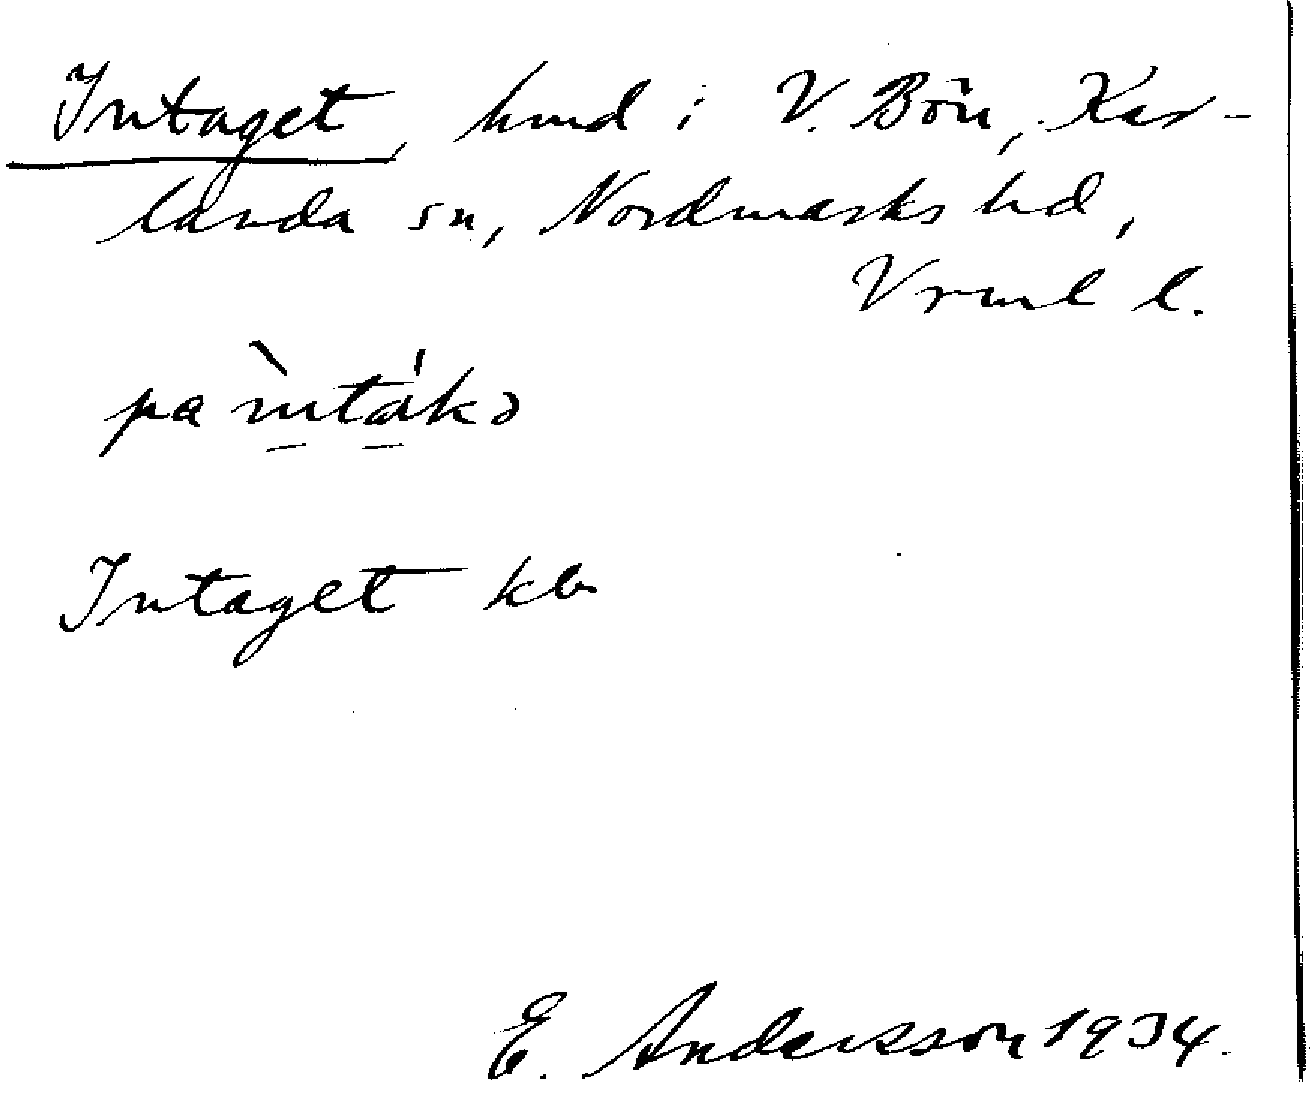 Intaget, hmd i V. Bön, Kar-
landa sn, Nordmarks hd,
Vrml l.
pa ìntákə
Intaget kbr
E. Andersson 1934.